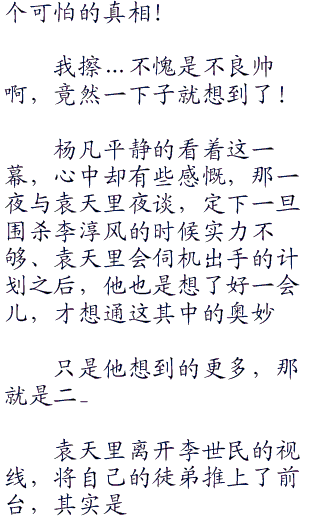 个可怕的真相！
我擦…不愧是不良帅
啊，竟然一下子就想到了！
杨凡平静的看着这一
幕，心中却有些感慨，那一
夜与袁天里夜谈，定下一旦
围杀李淳风的时候实力不
够、袁天里会伺机出手的计
划之后，他也是想了好一会
儿，才想通这其中的奥妙
只是他想到的更多，那
就是二_
袁天里离开李世民的视
线，将自己的徒弟推上了前
台，其实是